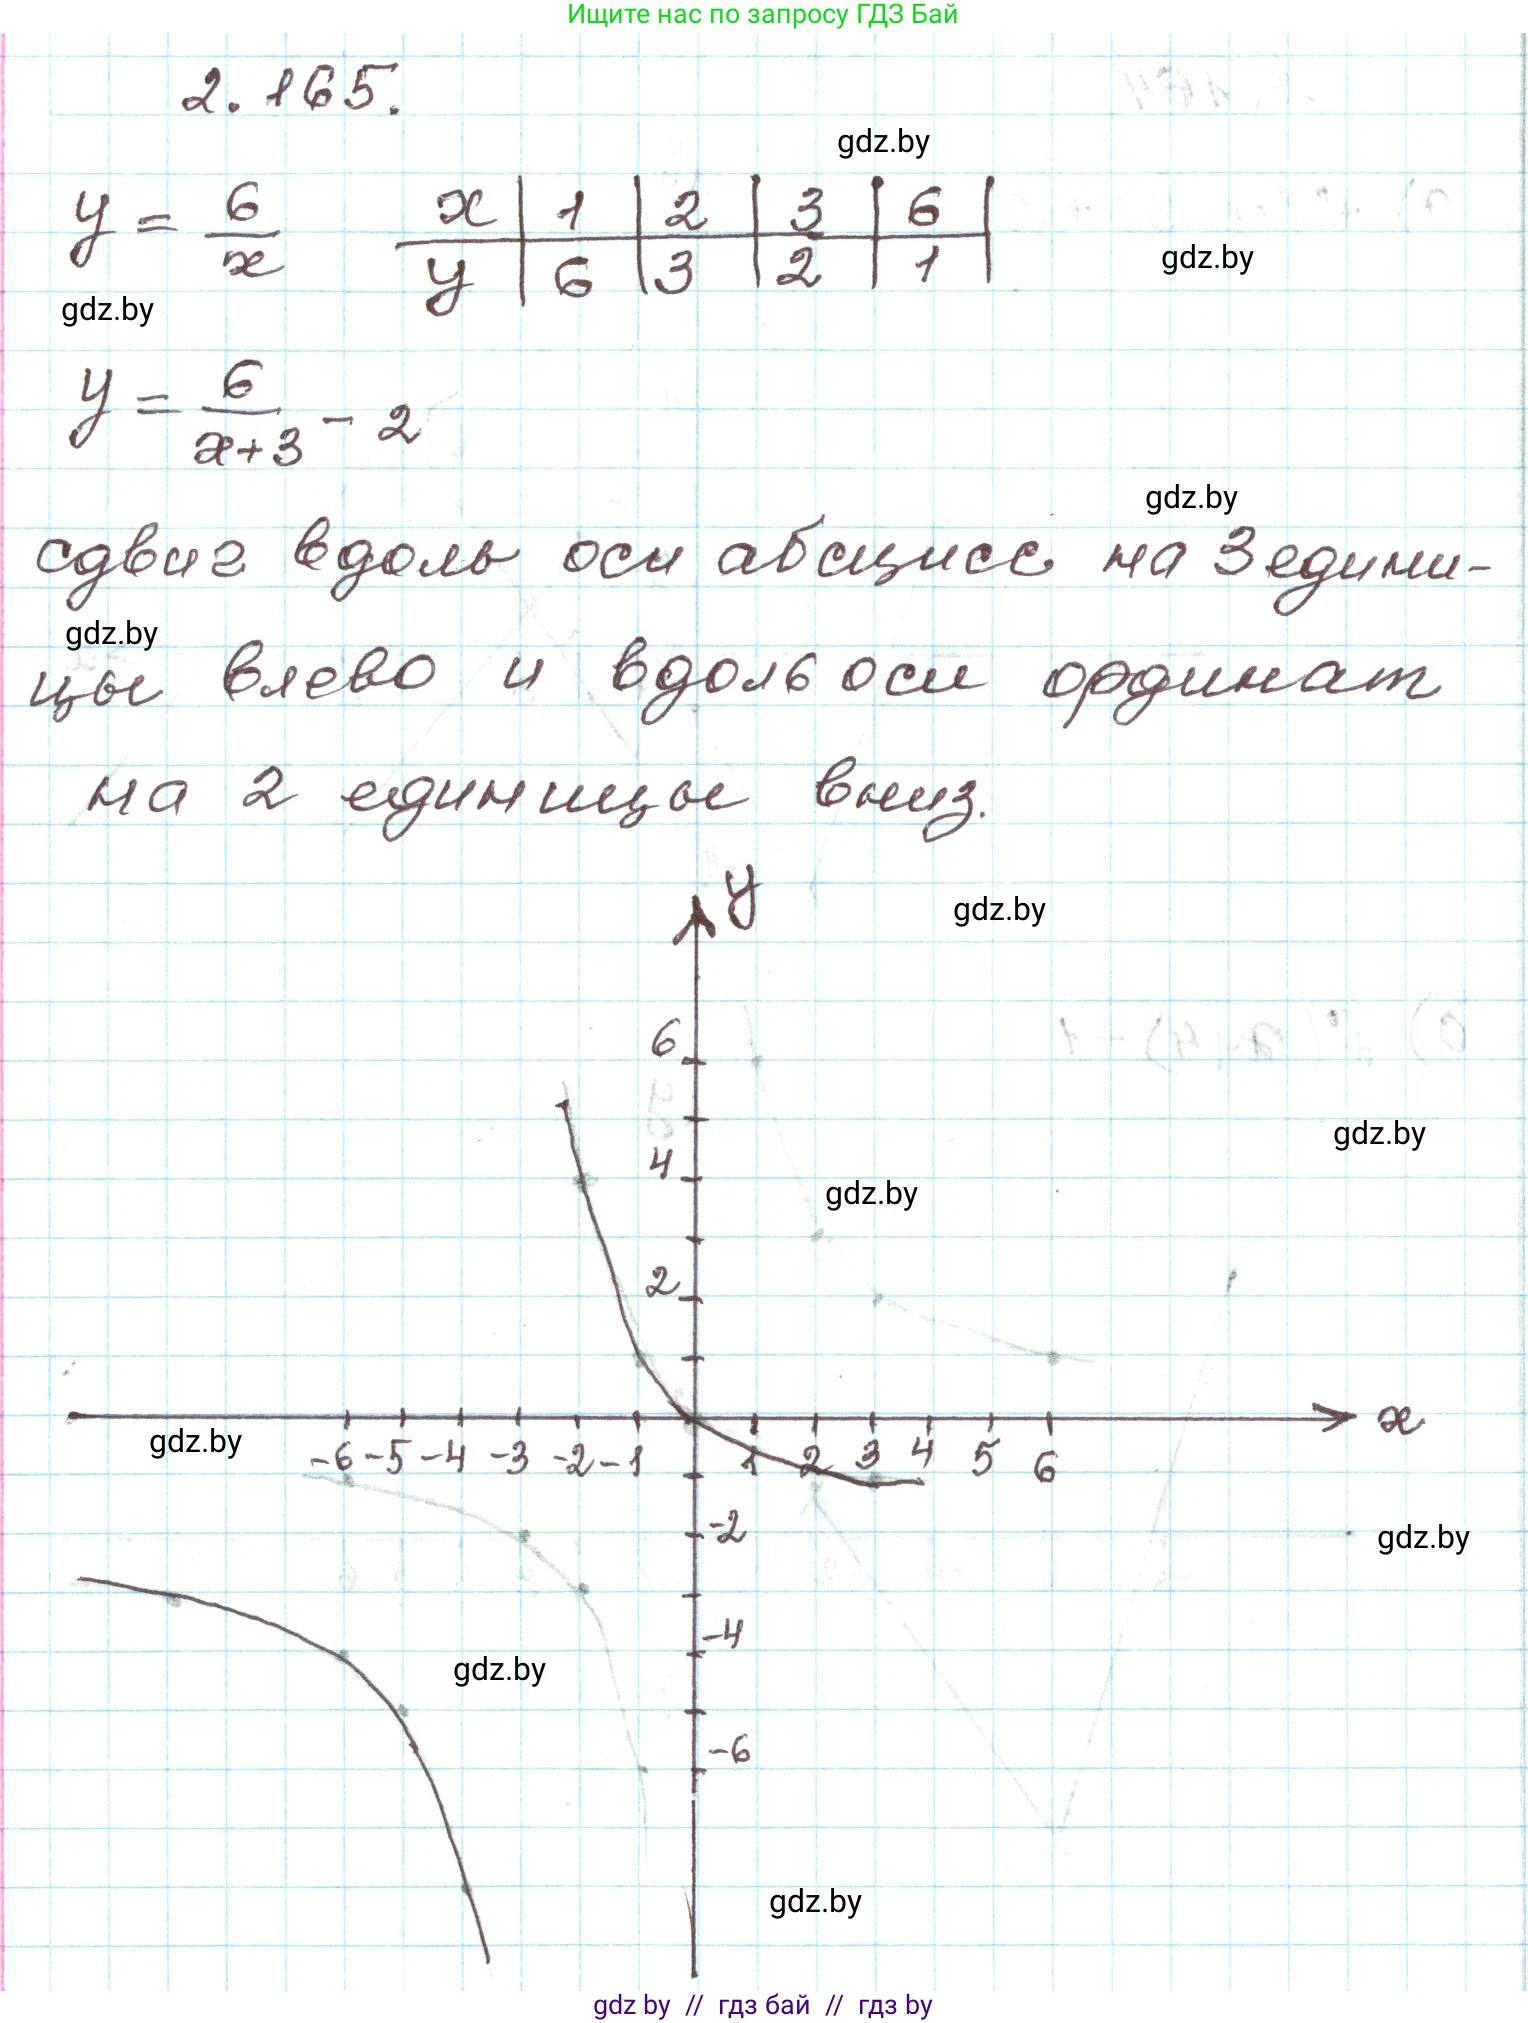 Ищите нас по запросу ГДЗ Бай
2.165.
gdz.by
y = 6/x
x | 1 | 2 | 3 | 6
y | 6 | 3 | 2 | 1
gdz.by
gdz.by
y = 6/(x+3) - 2
gdz.by
сдвиг вдоль оси абсцисс на 3 едини-
gdz.by
цы влево и вдоль оси ординат
на 2 единицы вниз.
y
gdz.by
6
gdz.by
4
gdz.by
2
x
gdz.by
-6 -5 -4 -3 -2 -1 1 2 3 4 5 6
-2
gdz.by
-4
gdz.by
-6
gdz.by
gdz by // гдз бай // гдз by